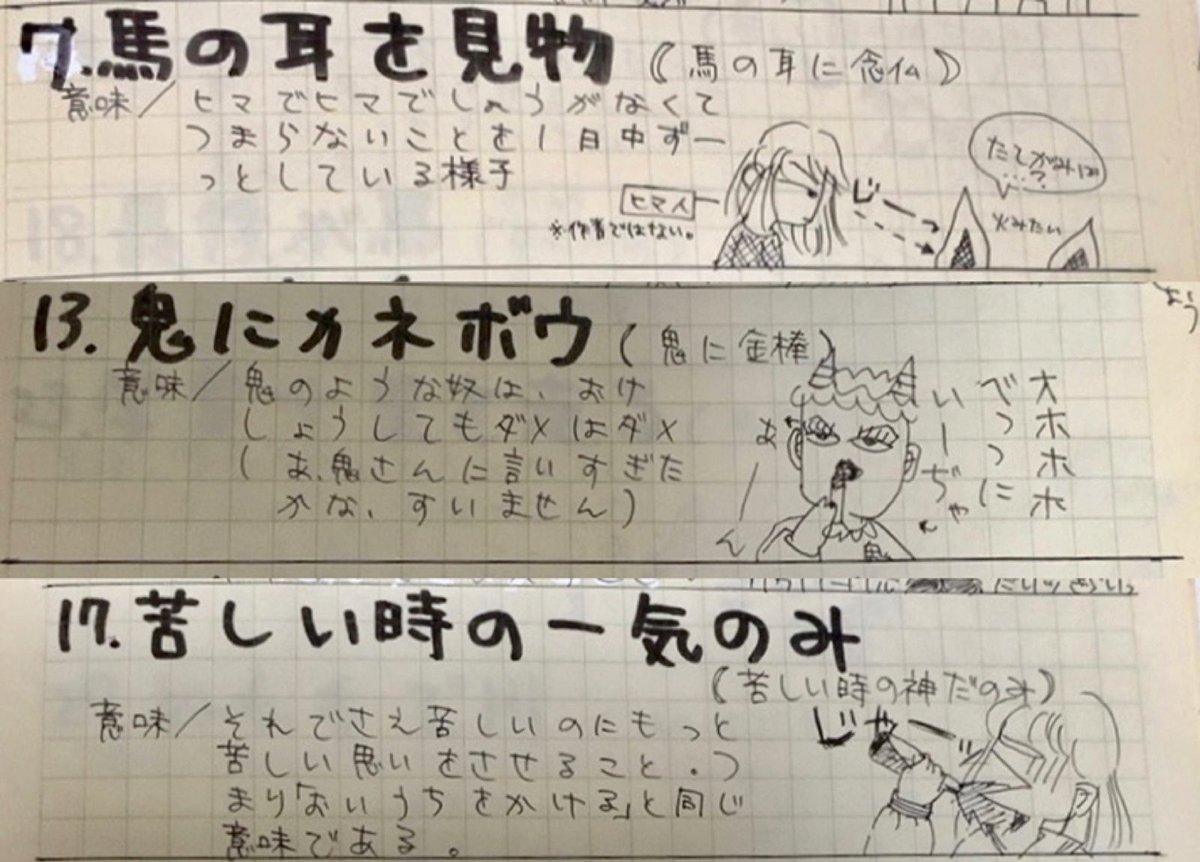 7.馬の耳を見物(馬の耳に念仏)
意味/ヒマでヒマでしょうがなくて
つまらないことを1日中ずー
っとしている様子
ヒマ人
※作者ではない。
じー
たてがみは
…?
火みたい
13.鬼にカネボウ(鬼に金棒)
意味/鬼のような奴は、おけ
しょうしてもダメはダメ
(あ、鬼さんに言いすぎた
かな、すいません)
オホホホ
べっつに
いーぢゃ
ん
あ〜ん
鬼
17.苦しい時の一気のみ
(苦しい時の神だのみ)
意味/それでさえ苦しいのにもっと
苦しい思いをさせること.つ
まり「おいうちをかける」と同じ
意味である。
じゃーッ